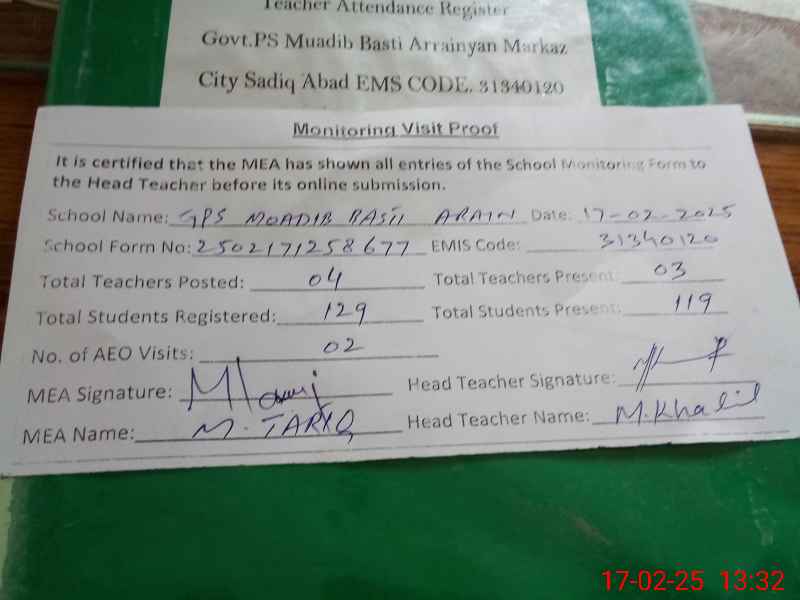 Teacher Attendance Register
Govt.PS Muadib Basti Arrainyan Markaz
City Sadiq Abad EMS CODE. 31340120
Monitoring Visit Proof
It is certified that the MEA has shown all entries of the School Monitoring Form to
the Head Teacher before its online submission.
School Name: GPS MOADIB BASTI ARAIN Date: 17-02-2025
School Form No: 2502171258677 EMIS Code: 31340120
Total Teachers Posted: 04 Total Teachers Present: 03
Total Students Registered: 129 Total Students Present: 119
No. of AEO Visits: 02
MEA Signature: Head Teacher Signature:
MEA Name: M. TARIQ Head Teacher Name: M. Khalil
17-02-25 13:32